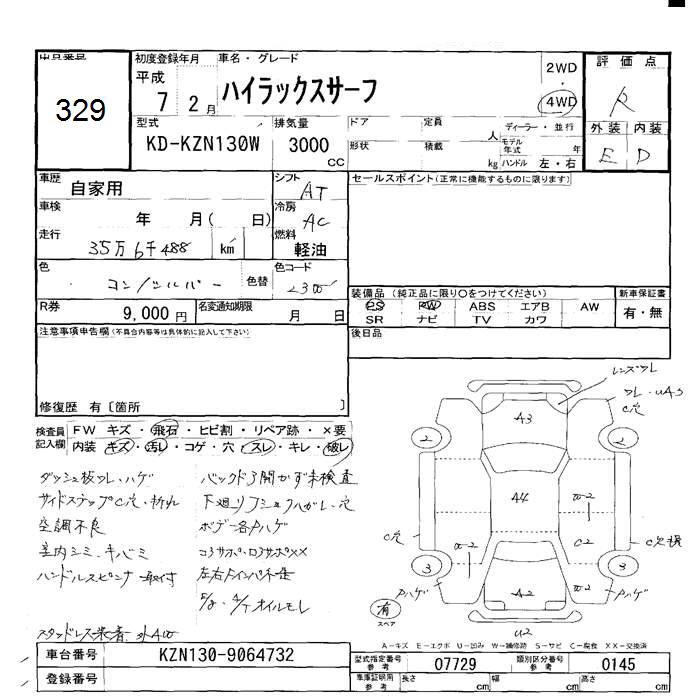 出品番号
329
初度登録年月
平成
7 2月
車名・グレード
ハイラックスサーフ
2WD
4WD
評価点
R
型式
KD-KZN130W
排気量
3000
CC
ドア
定員
人
ディーラー・並行
形状
積載
kg
モデル年式
年
ハンドル 左・右
外装 内装
E D
車歴
自家用
シフト
AT
セールスポイント(正常に機能するものに限ります)
車検
年 月( 日)
冷房
AC
走行
35万6千488 km
燃料
軽油
色
コン/シルバー
色替
色コード
R券
9,000 円
名変通知期限
月 日
装備品 (純正品に限り○をつけてください)
PS PW ABS エアB AW
SR ナビ TV カワ
新車保証書
有・無
注意事項申告欄(不具合内容等は具体的に記入して下さい)
後日品
修復歴 有〔箇所 〕
検査員記入欄
FW キズ・飛石・ヒビ割・リペア跡・×要
内装 キズ・汚レ・コゲ・穴・スレ・キレ・破レ
ダッシュ板ワレ・ハゲ
バックドア開かず未検査
サイドステップC穴・折れ
空調不良
ボデー各Pハゲ
室内シミ・キバミ
コアサポ・ロアサポXX
ハンドルスピンナー取付
オイルモレ
レンズワレ
C穴
A3
2
2
A4
C穴
C2
3
3
Pハゲ
A2
Pハゲ
U2
有
スペア
A-キズ E-エクボ U-凹み W-補修跡 S-サビ C-腐食 XX-交換済
車台番号
KZN130-9064732
型式指定番号
参考
07729
類別区分番号
参考
0145
登録番号
車庫証明用
参考
長さ cm
幅 cm
高さ cm